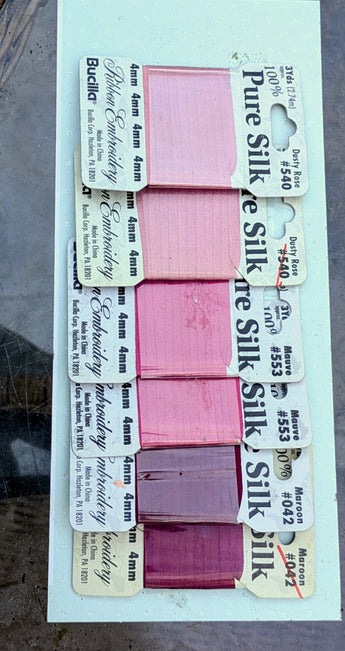 3Yds (2.74m)
approx.
100%
Dusty Rose
#540
Pure Silk
4mm 4mm 4mm 4mm
Ribbon Embroidery
Bucilla®
Made in China
Bucilla Corp. Hazleton, PA 18201
Dusty Rose
#540
Silk
4mm 4mm 4mm
Embroidery
Made in China
Bucilla Corp. Hazleton, PA 18201
100%
Mauve
#553
ure Silk
4mm 4mm 4mm
Embroidery
Bucilla
Made in China
Mauve
#553
Silk
4mm 4mm
Embroidery
Made in China
Corp. Hazleton, PA 18201
100%
Maroon
#042
Silk
4mm 4mm
Embroidery
Made in China
Hazleton, PA 18201
Maroon
#042
Silk
4mm 4mm
Embroidery
Made in China
Corp. Hazleton, PA 18201